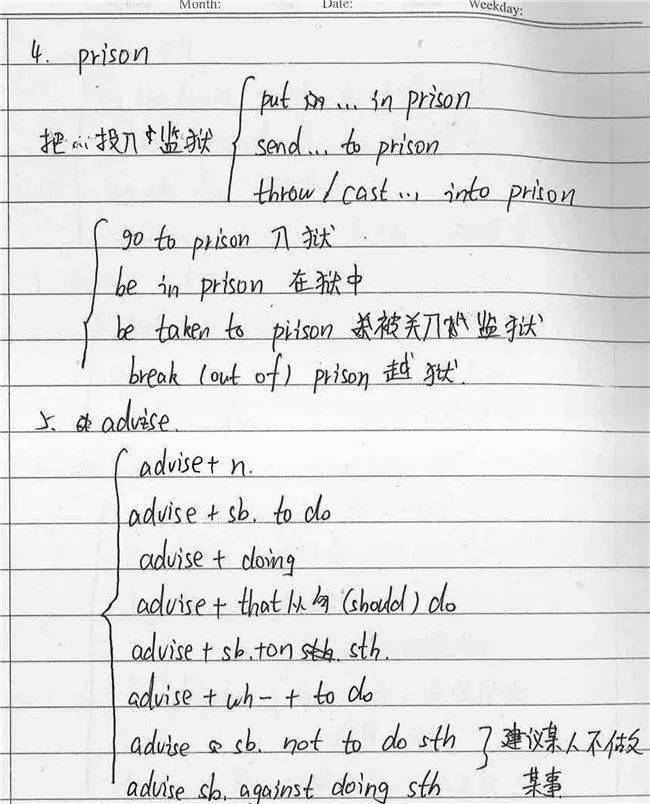 Month: Date: Weekday:
4. prison
put … in prison
把…投入监狱 send… to prison
throw / cast … into prison
go to prison 入狱
be in prison 在狱中
be taken to prison 被关入监狱
break (out of) prison 越狱.
5. advise.
advise + n.
advise + sb. to do
advise + doing
advise + that从句 (should) do
advise + sb. + on sth.
advise + wh- + to do
advise sb. not to do sth } 建议某人不做
advise sb. against doing sth 某事